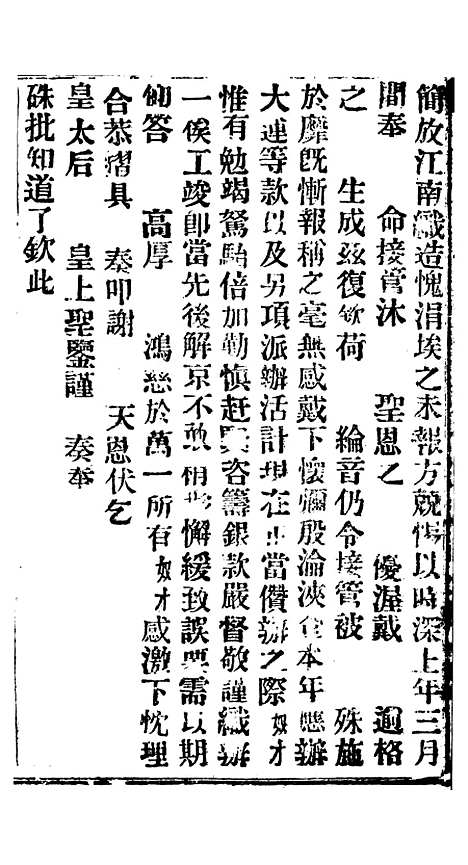 簡放江南織造愧涓埃之未報方兢惕以時深上年三月
間奉 命接管沐 聖恩之 優渥戴 逾格
之 生成茲復欽荷 綸音仍令接管被 殊施
於靡旣慚報稱之毫無感戴下懷彌殷淪浹查本年應辦
大運等款以及另項派辦活計現在正當儹辦之際奴才
惟有勉竭駑駘倍加勤愼赶緊咨籌銀款嚴督敬謹織辦
一俟工竣卽當先後解京不敢稍涉懈緩致誤要需以期
仰答 高厚 鴻慈於萬一所有奴才感激下忱理
合恭摺具 奏叩謝 天恩伏乞
皇太后 皇上聖鑒謹 奏奉
硃批知道了欽此